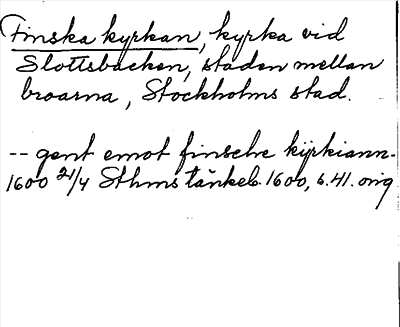 Finska kyrkan, kyrka vid
Slottsbacken, staden mellan
broarna, Stockholms stad.
-- gent emot finsche kijrkiann.
1600 21/4 Sthms tänkeb. 1600, s. 41. orig